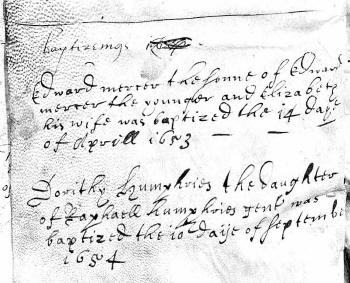 baptizeings
Edward mercer the sonne of Edward
mercer the younger and Elizabeth
his wife was baptized the 14 daye
of Aprill 1653
Dorithy Humphries the daughter
of Raphaell Humphries gent was
baptized the 10 daye of Septembe
1654